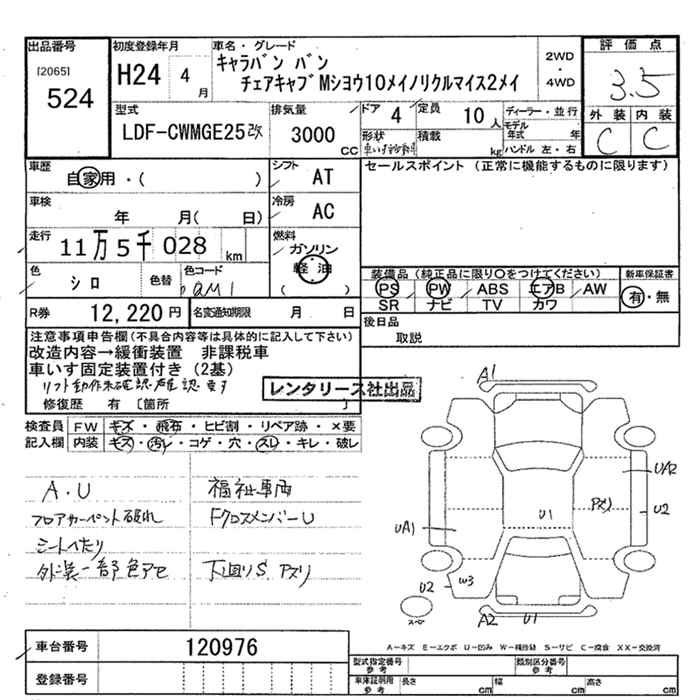 出品番号
[2065]
524
初度登録年月
H24 4
月
車名・グレード
キャラバン バン
チェアキャブMショウ10メイノリクルマイス2メイ
2WD
・
4WD
評価点
3.5
外装 内装
C C
型式
LDF-CWMGE25改
排気量
3000
CC
ドア 4
定員 10 人
形状
積載
kg
ディーラー・並行
モデル年式 年
ハンドル 左・右
車歴
自家用・( )
シフト
AT
セールスポイント(正常に機能するものに限ります)
車検
年 月( 日)
冷房
AC
走行
11万5千028 km
燃料
ガソリン
軽油
( )
色
シロ
色替
色コード
R券
12,220円
名変通知期限
月 日
装備品(純正品に限り○をつけてください)
PS PW ABS エアB AW
SR ナビ TV カワ
新車保証書
有・無
後日品
取説
注意事項申告欄(不具合内容等は具体的に記入して下さい)
改造内容→緩衝装置 非課税車
車いす固定装置付き(2基)
リフト動作未確認 確認要す
レンタリース社出品
修復歴 有 [箇所 ]
検査員
記入欄
FW キズ・飛石・ヒビ割・リペア跡・×要
内装 キズ・汚レ・コゲ・穴・スレ・キレ・破レ
A・U
フロアカーペント破れ
シートへたり
外装一部色アセ
福祉車両
FクロスメンバーU
下回りS アズリ
A1
UA2
U2
アズリ
U1
UA1
U2
W3
A2
U1
スペア
A-キズ E-エクボ U-凹み W-補修跡 S-サビ C-腐食 XX-交換済
車台番号
120976
登録番号
型式指定番号
参考
類別区分番号
参考
車庫証明用
参考
長さ cm 幅 cm 高さ cm